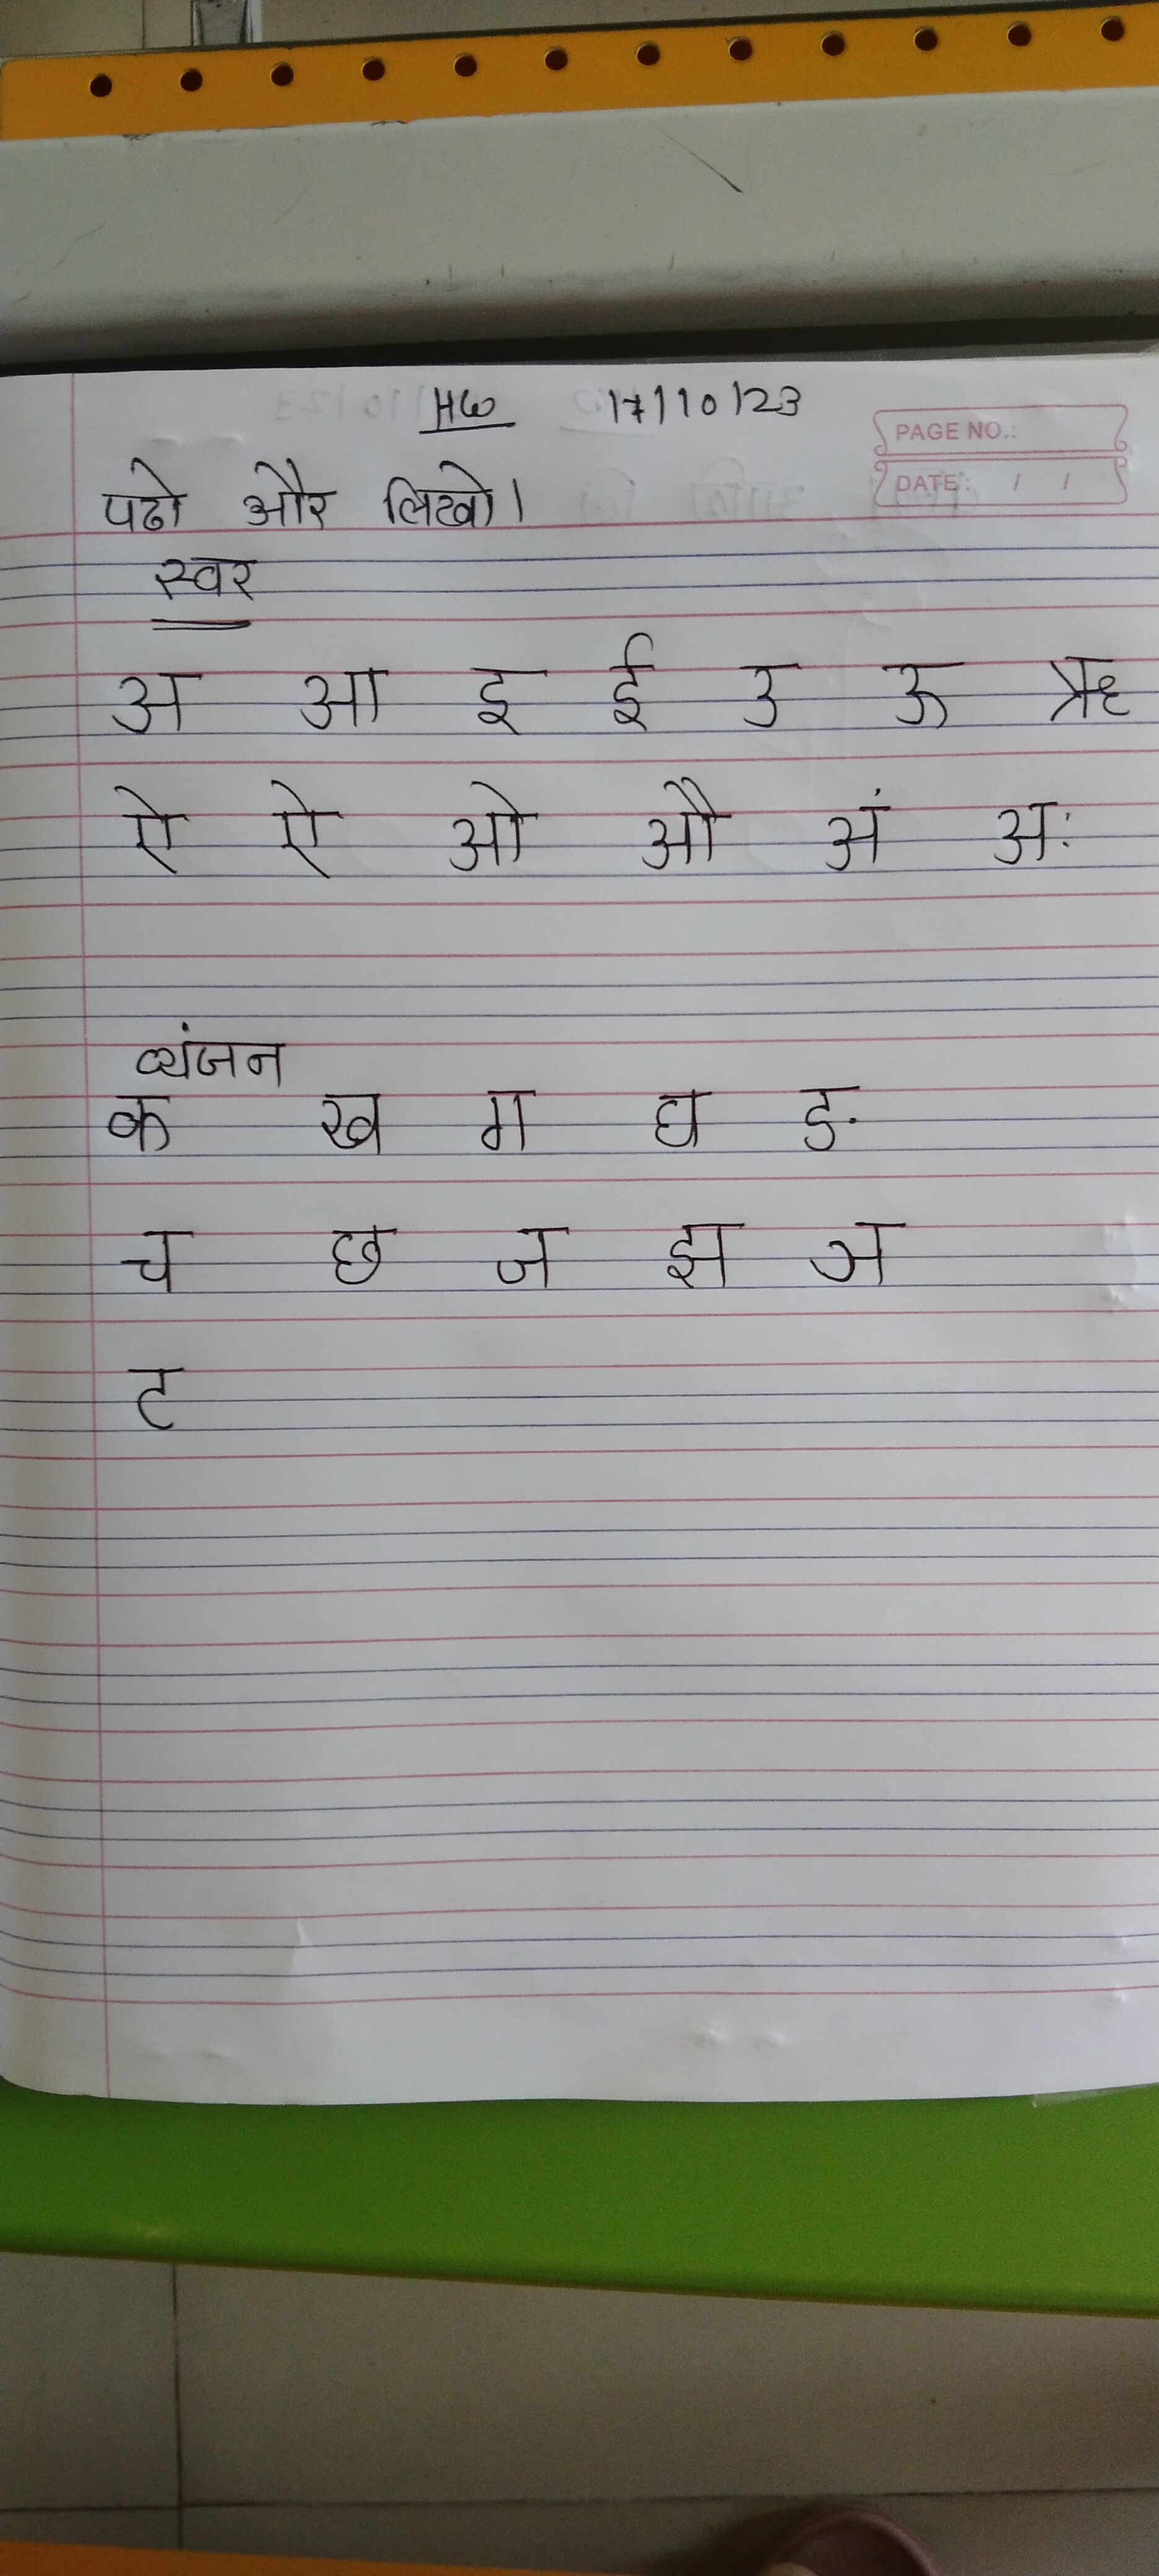 HW 17/10/23
PAGE NO.:
DATE: / /
पढो और लिखो।
स्वर
अ आ इ ई उ ऊ ऋ
ऐ ऐ ओ औ अं अः
व्यंजन
क ख ग घ ङ
च छ ज झ ञ
ट